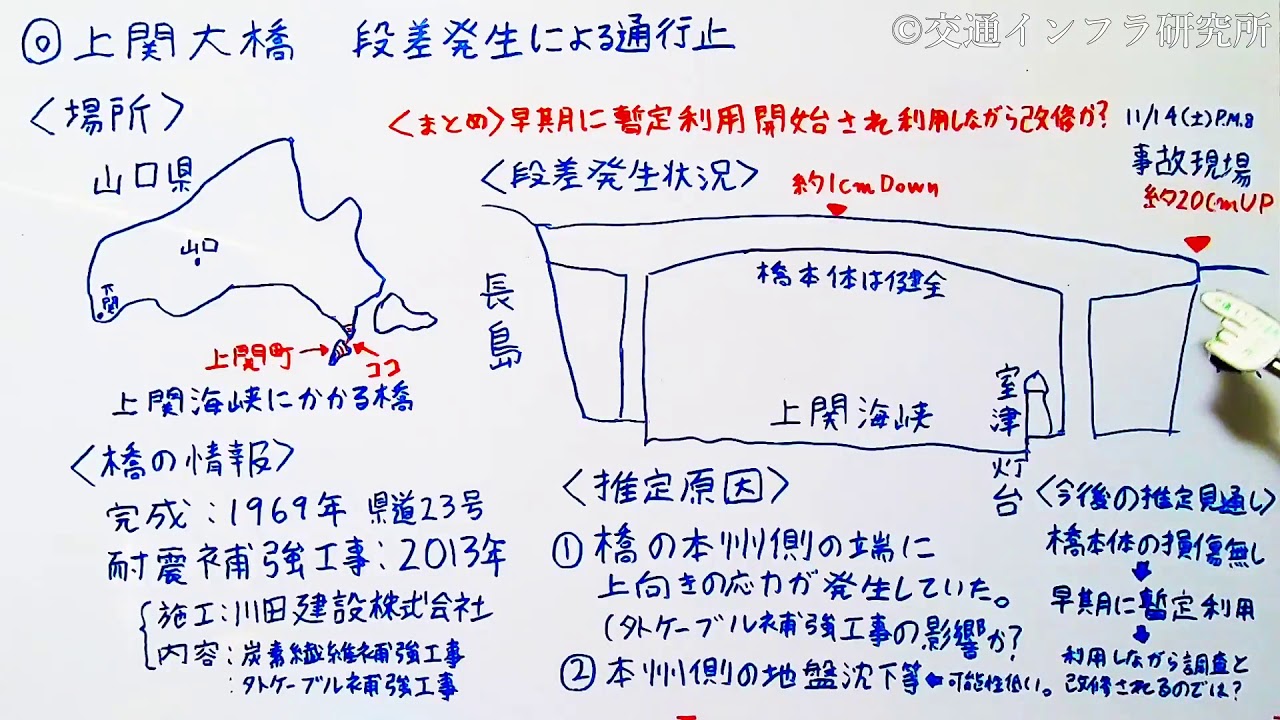 ◎上関大橋 段差発生による通行止
©交通インフラ研究所
〈場所〉
山口県
山口
下関
上関町→
ココ
上関海峡にかかる橋
〈橋の情報〉
完成:1969年 県道23号
耐震補強工事:2013年
施工:川田建設株式会社
内容:炭素繊維補強工事
:外ケーブル補強工事
〈まとめ〉早期に暫定利用開始され利用しながら改修か?
11/14(土)P.M.8
事故現場
約20cmUP
〈段差発生状況〉
約1cmDown
長島
橋本体は健全
上関海峡
室津灯台
〈推定原因〉
①橋の本州側の端に
上向きの応力が発生していた。
(外ケーブル補強工事の影響か?
②本州側の地盤沈下等←可能性低い。
〈今後の推定見通し〉
橋本体の損傷無し
↓
早期に暫定利用
↓
利用しながら調査と
改修されるのでは?